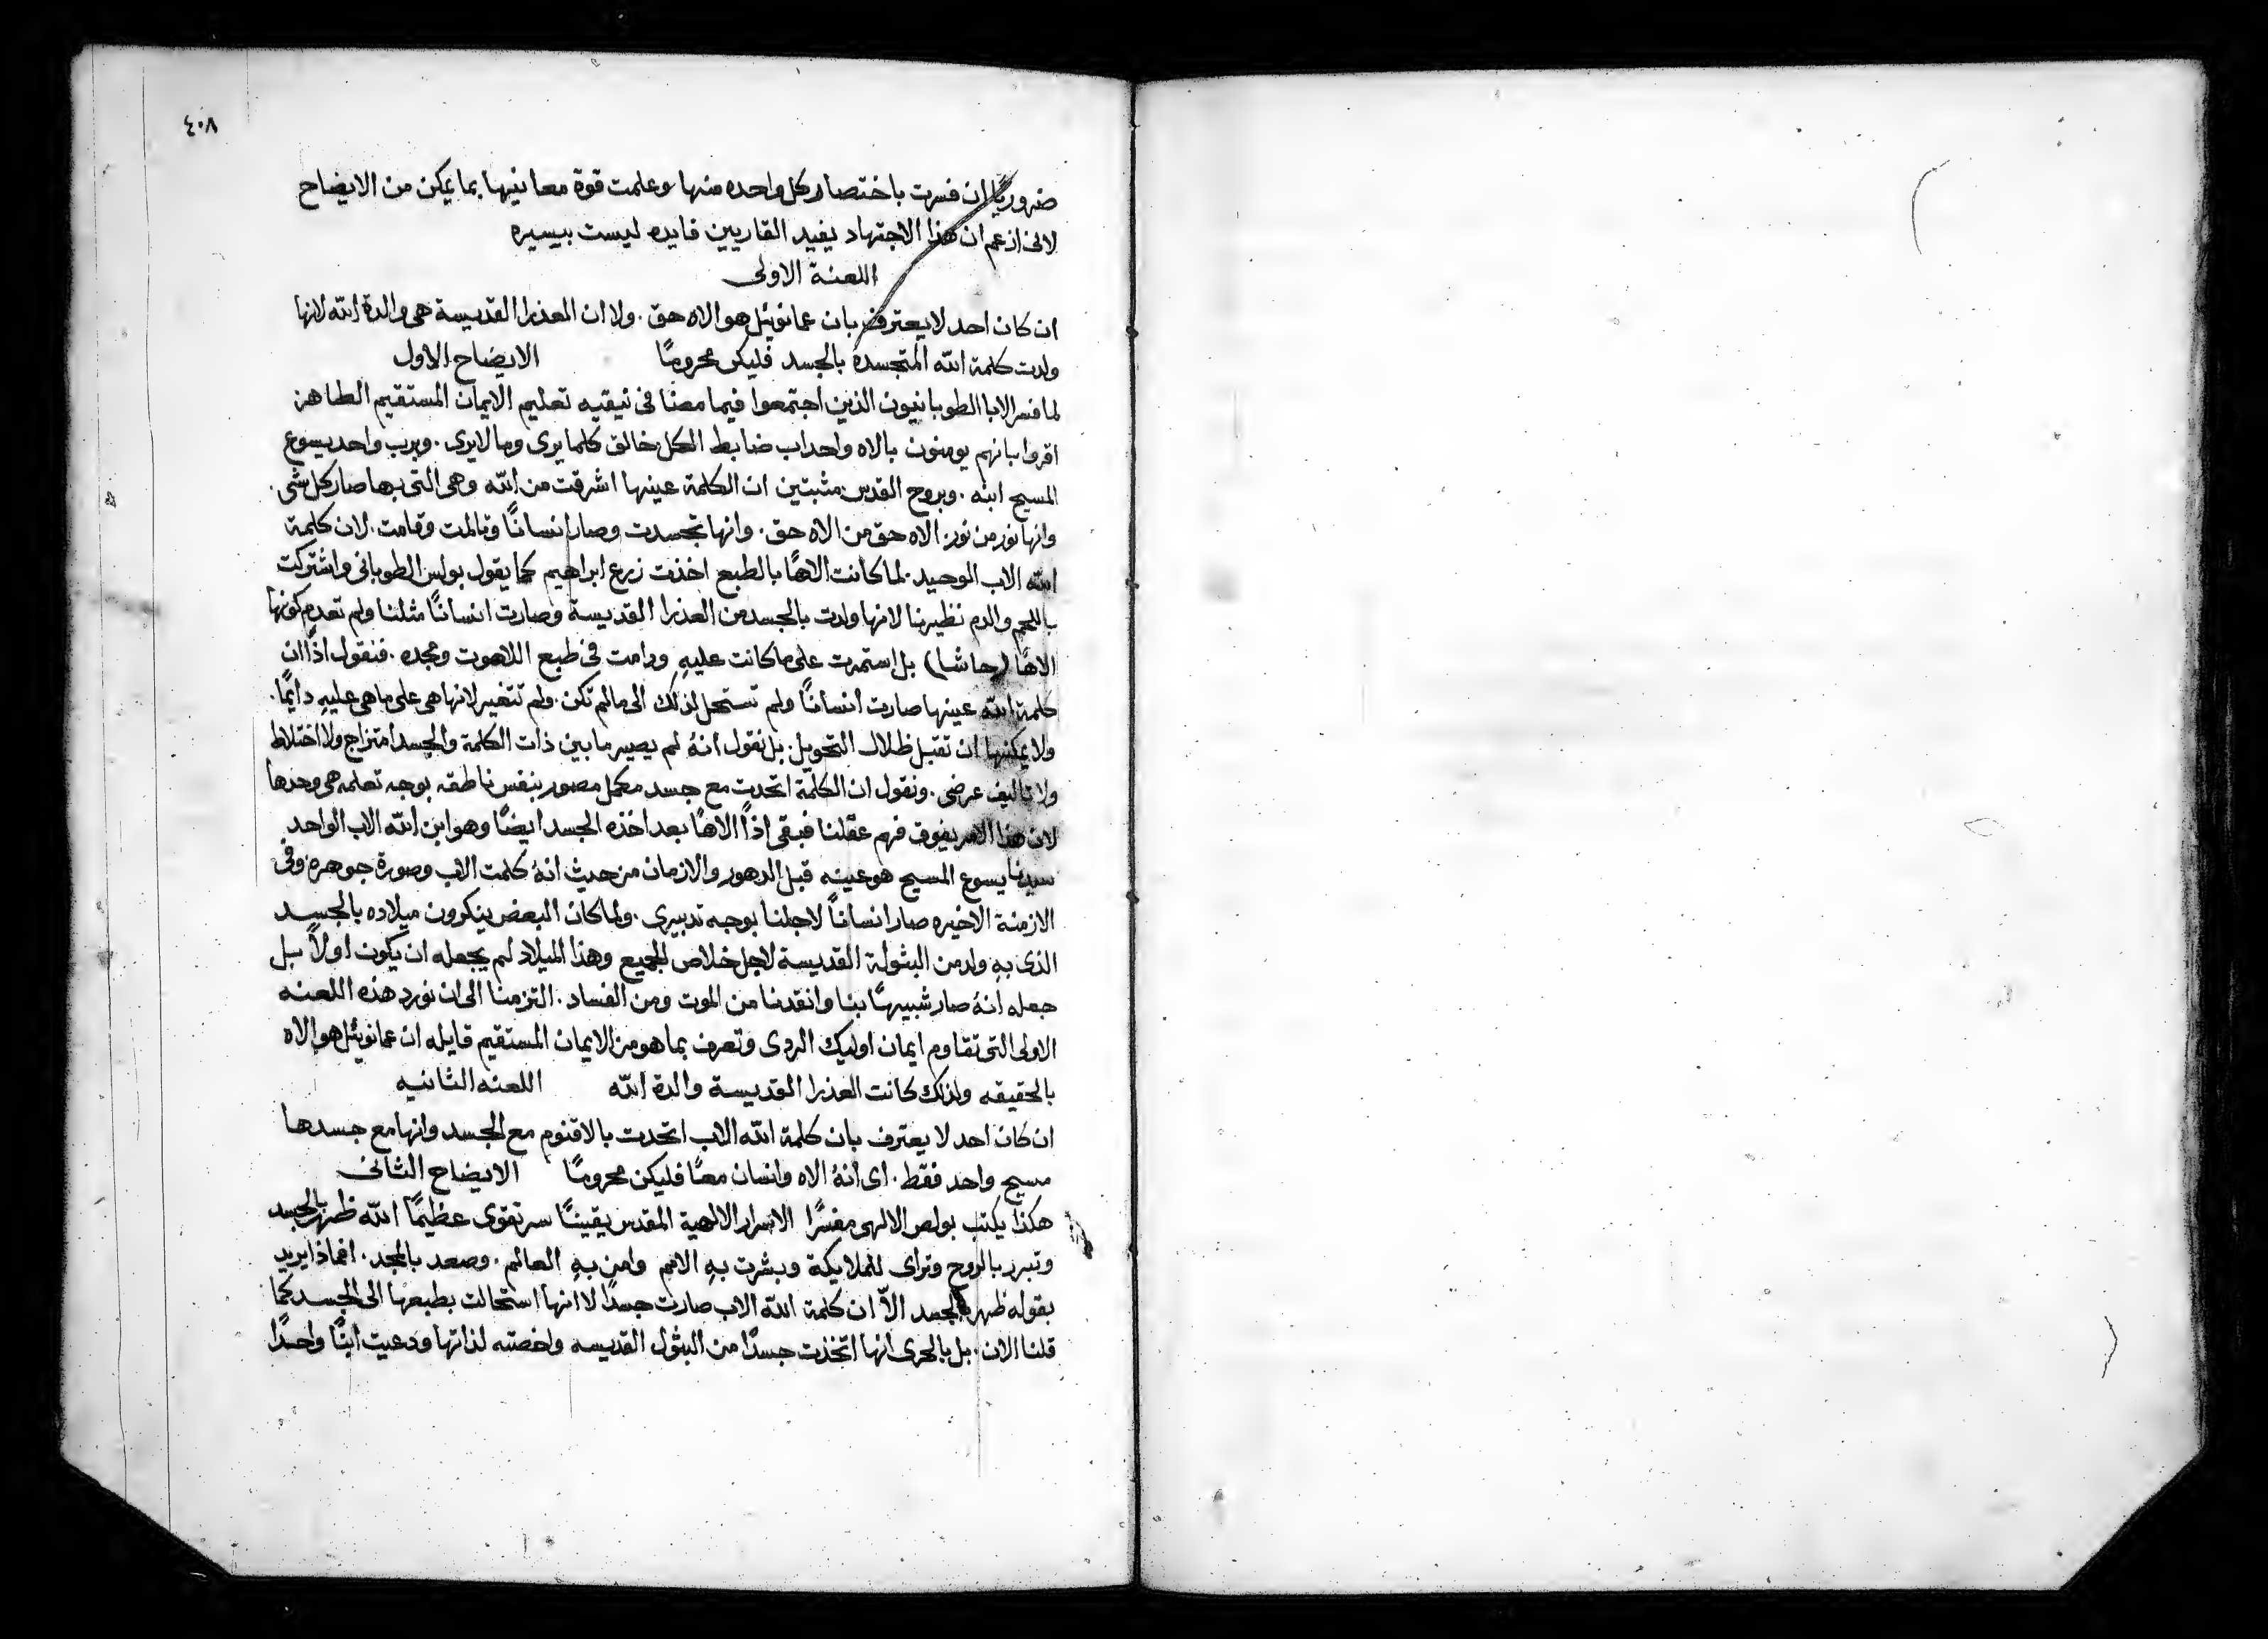 ٤٠٨
ضروريًا ان فسرت باختصار كل واحده منها وعلمت قوة معانيها بما يمكن من الايضاح
لانى ازعم ان هذا الاجتهاد يفيد القاريين فايده ليست بيسيره
اللعنة الاولى
ان كان احد لا يعترف بان عمانوئيل هو الاه حق . ولا ان العذرا القديسة هى والدة الله لانها
ولدت كلمة الله المتجسدة بالجسد فليكن محرومًا الايضاح الاول
لما فسر الابا الطوبانيون الذين اجتمعوا فيما مضا فى نيقيه تعليم الايمان المستقيم الطاهر
اقروا بانهم يومنون بالاه واحد اب ضابط الكل خالق كلما يرى وما لا يرى . وبرب واحد يسوع
المسيح ابنه . وبروح القدس مثبتين ان الكلمة عينها اشرقت من الله وهى التى بها صار كل شى .
وانها نور من نور . الاه حق من الاه حق . وانها تجسدت وصار انسانًا وتالمت وقامت . لان كلمة
الله الاب الوحيد . لما كانت الاهًا بالطبع اخذت زرع ابراهيم كما يقول بولس الطوبانى واشتركت
باللحم والدم نظيرنا لانها ولدت بالجسد من العذرا القديسة وصارت انسانًا مثلنا ولم تعدم كونها
الاهًا (حاشا) بل استمرت على ما كانت عليهِ ودامت فى طبع اللاهوت ومجده . فنقول اذًا ان
كلمة الله عينها صارت انسانًا ولم تستحل لذلك الى مالم تكن . ولم تتغير لانها هى على ما هى عليهِ دايمًا .
ولا يمكنها ان تقبل ظلال التحويل . بل نقول انهُ لم يصير ما بين ذات الكلمة والجسد امتزاج ولا اختلاط
ولا تاليف عرضى . ونقول ان الكلمة اتحدت مع جسد مكمل مصور بنفس ناطقه بوجه تعلمه هى وحدها
لان هذا الامر يفوق فهم عقلنا فبقى اذًا الاهًا بعد اخذه الجسد ايضًا وهو ابن الله الاب الواحد
سيدنا يسوع المسيح هو عينه قبل الدهور والازمان من حيث انهُ كلمت الاب وصورة جوهره وفى
الازمنة الاخيره صار انسانًا لاجلنا بوجه تدبيرى . ولما كان البعض ينكرون ميلاده بالجسد
الذى بهِ ولد من البتولة القديسة لاجل خلاص الجميع وهذا الميلاد لم يجعله ان يكون اولاً بل
جعله انهُ صار شبيهًا بنا وانقدنا من الموت ومن الفساد . التزمنا الى ان نورد هذه اللعنه
الاولى التى تقاوم ايمان اوليك الردى وتعرف بما هو من الايمان المستقيم قايله ان عمانوئيل هو الاه
بالحقيقه ولذلك كانت العذرا القديسة والدة الله اللعنه الثانيه
ان كان احد لا يعترف بان كلمة الله الاب اتحدت بالاقنوم مع الجسد وانها مع جسدها
مسيح واحد فقط . اى انهُ الاه وانسان معًا فليكن محرومًا الايضاح الثانى
هكذا يكتب بولص الالهى مفسرًا الاسرار الالهية المقدس يقينًا سر تقوى عظيمًا الله ظهر بالجسد
وتبرر بالروح وتراى للملايكة وبشرت بهِ الامم وامن بهِ العالم . وصعد بالمجد . افماذا يريد
بقوله ظهر بالجسد الاّ ان كلمة الله الاب صارت جسدًا لا انها استحالت بطبعها الى الجسد كما
قلنا الان . بل بالحرى انها اتخذت جسدًا من البتول القديسه واخصته لذاتها ودعيت ابنًا واحدًا